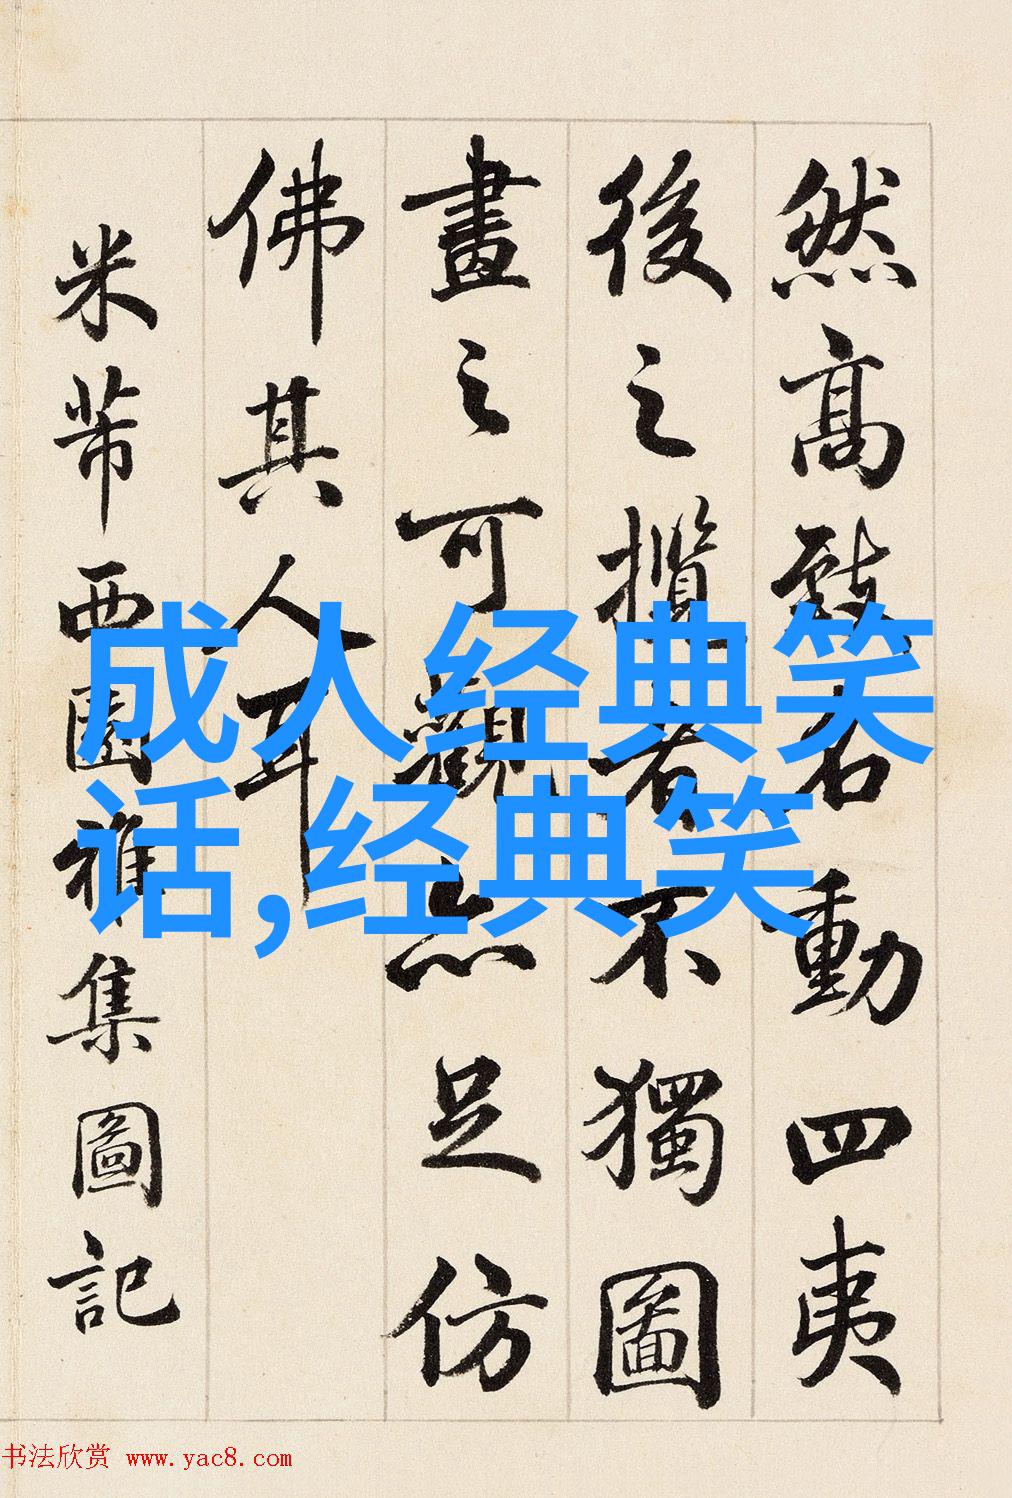 然高致名動四夷
後之攬者不獨圖
畫之可觀亦足仿
佛其人耳
米芾西園雅集圖記
成人经典笑
话,经典笑
书法欣赏 www.yac8.com